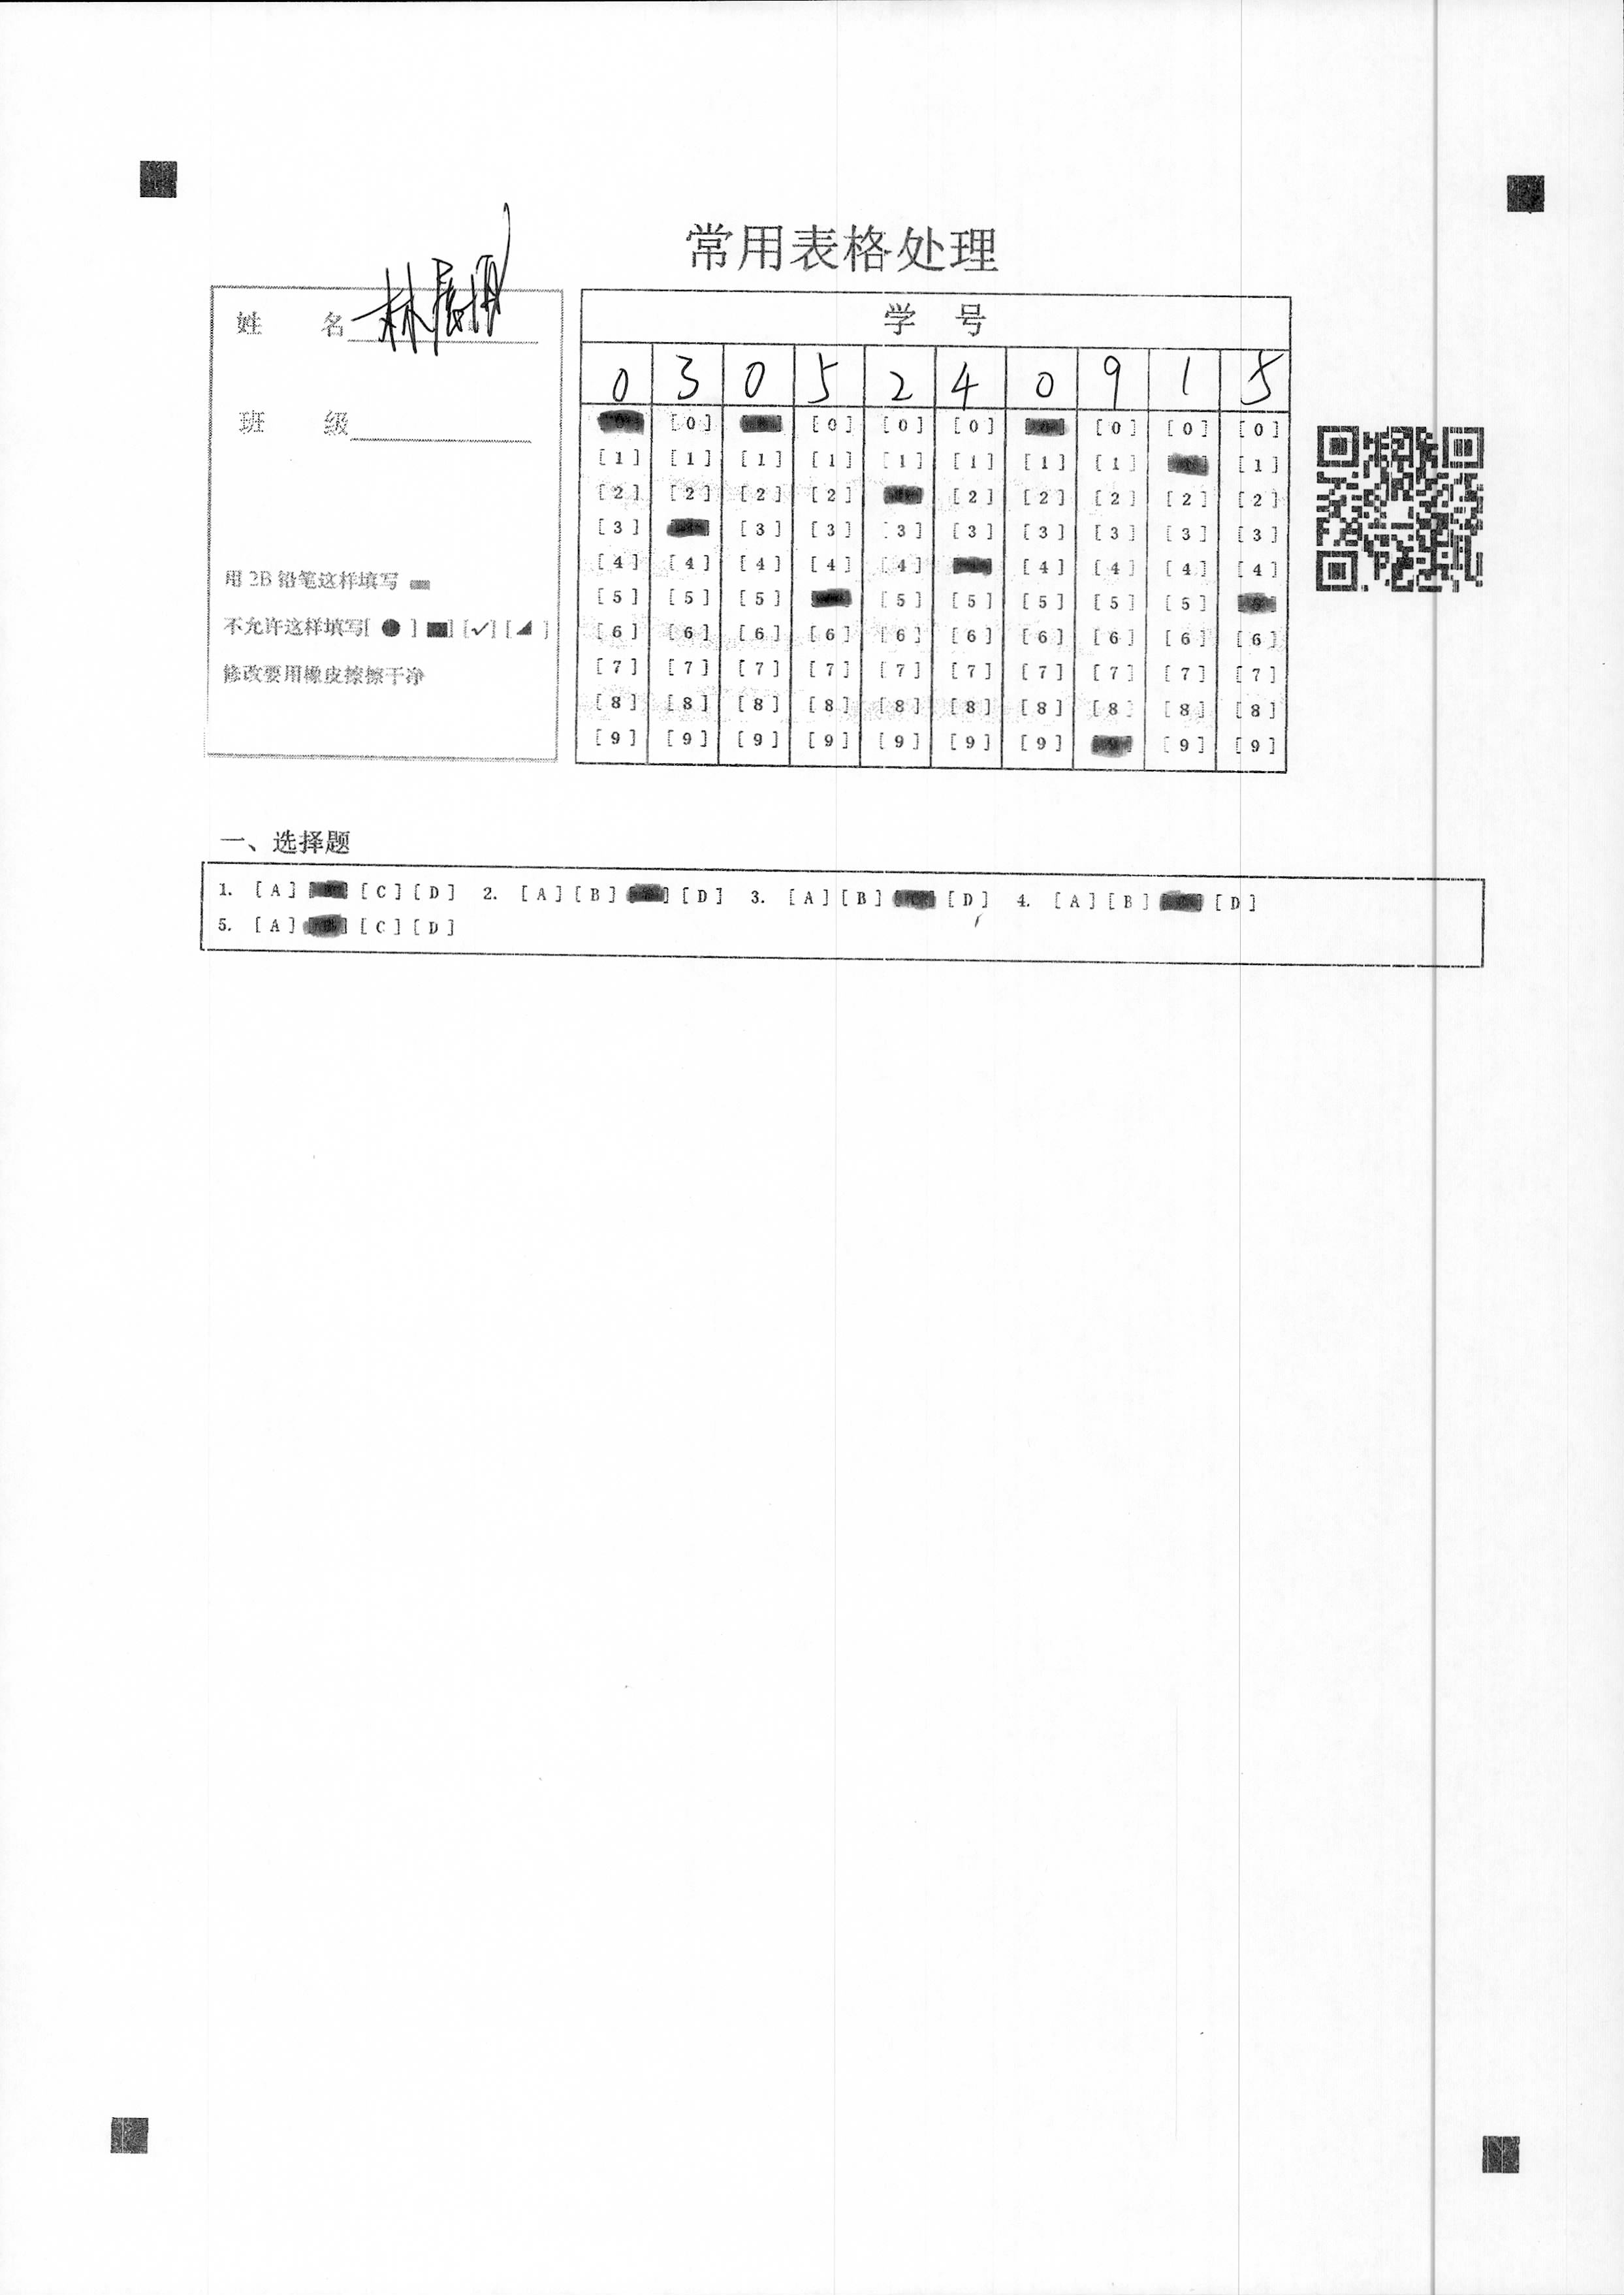 常用表格处理
姓 名 林
班 级
用 2B 铅笔这样填写
不允许这样填写[ ● ] ■] [✓] [◢ ]
修改要用橡皮擦擦干净
学 号
0 3 0 5 2 4 0 9 1 5
[0] [0] [0] [0] [0] [0] [0]
[1] [1] [1] [1] [1] [1] [1] [1] [1]
[2] [2] [2] [2] [2] [2] [2] [2] [2]
[3] [3] [3] [3] [3] [3] [3] [3] [3]
[4] [4] [4] [4] [4] [4] [4] [4] [4]
[5] [5] [5] [5] [5] [5] [5] [5]
[6] [6] [6] [6] [6] [6] [6] [6] [6] [6]
[7] [7] [7] [7] [7] [7] [7] [7] [7] [7]
[8] [8] [8] [8] [8] [8] [8] [8] [8] [8]
[9] [9] [9] [9] [9] [9] [9] [9] [9]
一、选择题
1. [A] [C] [D] 2. [A] [B] [D] 3. [A] [B] [D] 4. [A] [B] [D]
5. [A] [C] [D]